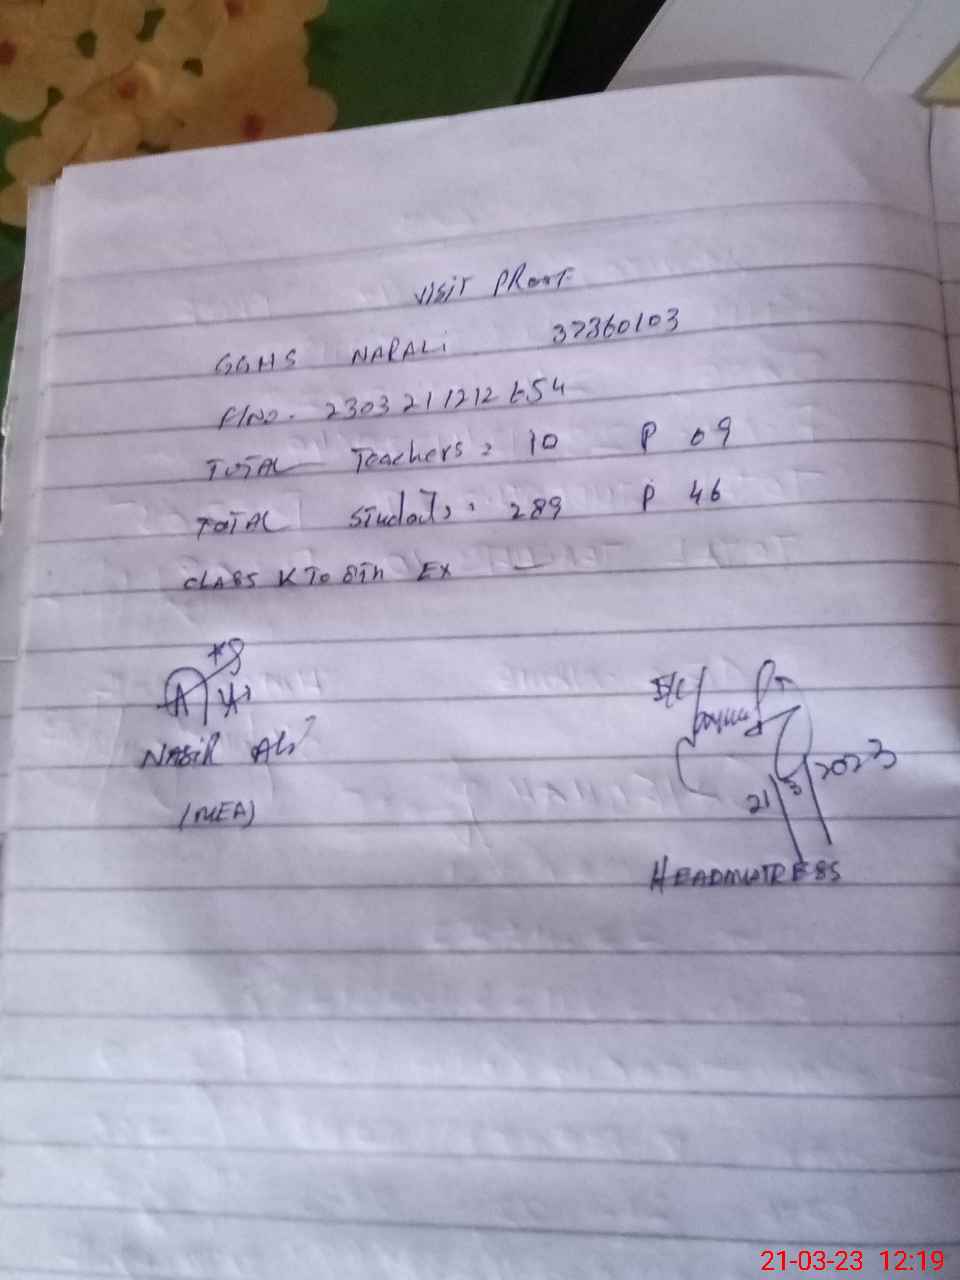 VISIT PROOF
GGHS NARALI 37360103
F/NO. 2303211212654
TOTAL Teachers: 10 P 09
TOTAL Students: 289 P 46
CLASS K TO 8TH EX —
NASIR Ali
(MEA)
I/C
21/3/2023
HEADMISTRESS
21-03-23 12:19